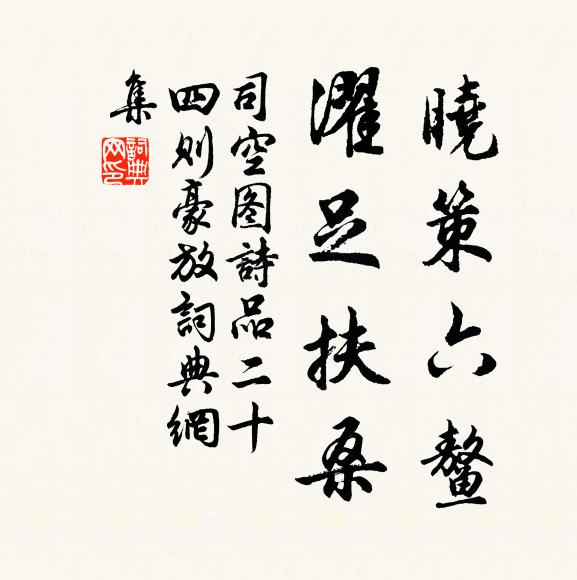 曉策六鼇
濯足扶桑
司空图詩品二十
四则豪放詞典網
集
詞典網印